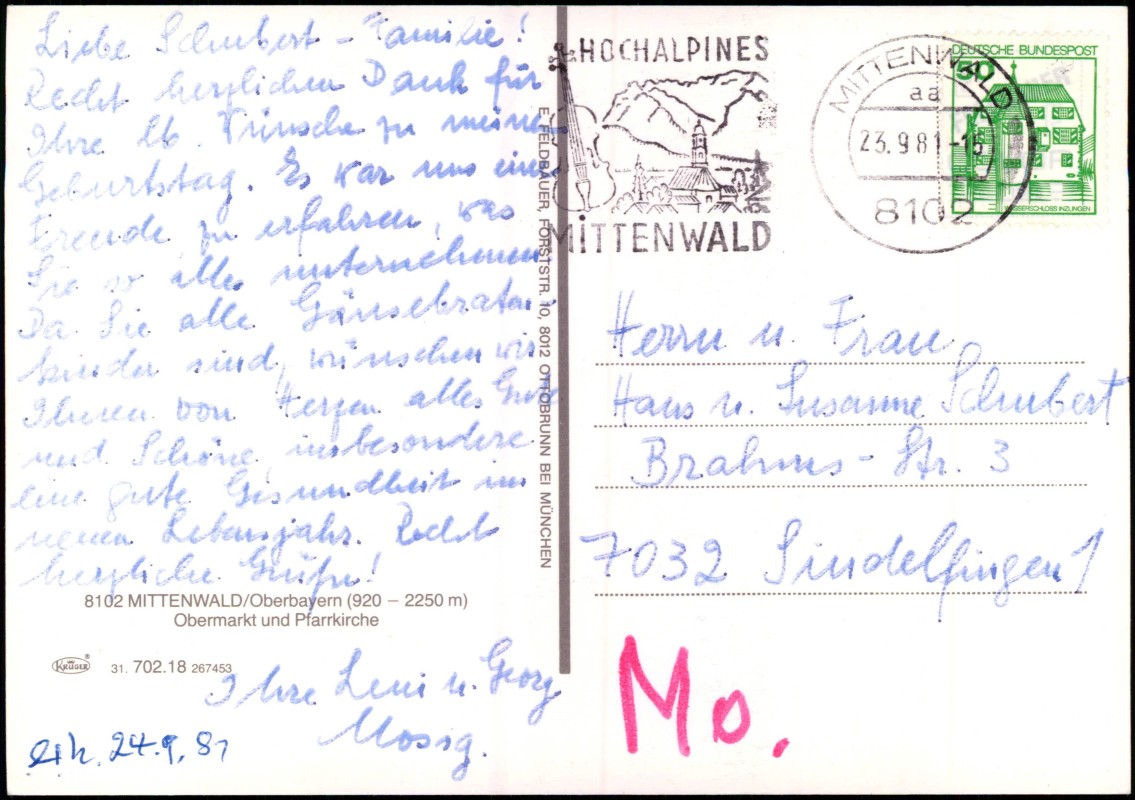 Liebe Schubert-Familie!
Recht herzlichen Dank für
Ihre lb. Wünsche zu meinem
Geburtstag. Es war uns eine
Freude zu erfahren, was
Sie so alles unternehmen
Da Sie alle Gänsebraten
kinder sind, wünschen wir
Ihnen von Herzen alles Gute
und Schöne, insbesondere
eine gute Gesundheit im
neuen Lebensjahr. Recht
herzliche Grüße!
8102 MITTENWALD/Oberbayern (920 – 2250 m)
Obermarkt und Pfarrkirche
KRÜGER® 31. 702.18 267453
Ihre Leni u. Georg
Mossig.
erh. 24.9.81
E. FELDBAUER, FORSTSTR. 10, 8012 OTTOBRUNN BEI MÜNCHEN
HOCHALPINES
MITTENWALD
MITTENWALD
aa
23.9.81-15
8102
DEUTSCHE BUNDESPOST
50
WASSERSCHLOSS INZLINGEN
Herrn u. Frau
Hans u. Susanne Schubert
Brahms-Str. 3
7032 Sindelfingen 1
Mo.